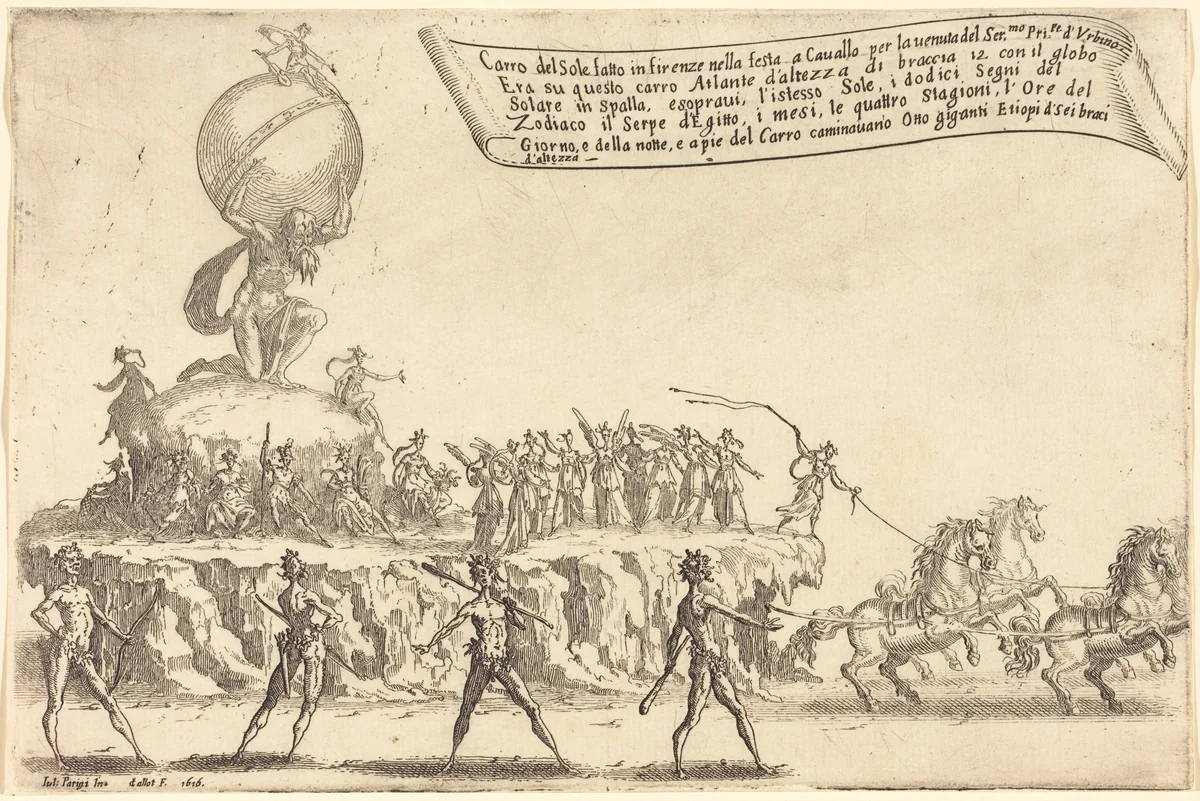 Carro del Sole fatto in firenze nella festa a Cauallo per la uenuta del Ser.mo Pri.pe d'Vrbino.
Era su questo carro Atlante d'altezza di braccia 12 con il globo
Solare in spalla, esoprauí, l'istesso Sole, i dodici Segni del
Zodiaco il Serpe d'Egitto, i mesi, le quattro Stagioni, l'Ore del
Giorno, e della notte, e a pie del Carro caminauano Otto giganti Etiopi d'Sei braci
d'altezza —
Iul: Parigi In. Callot F. 1616.